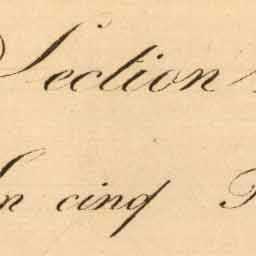 Section
en cinq